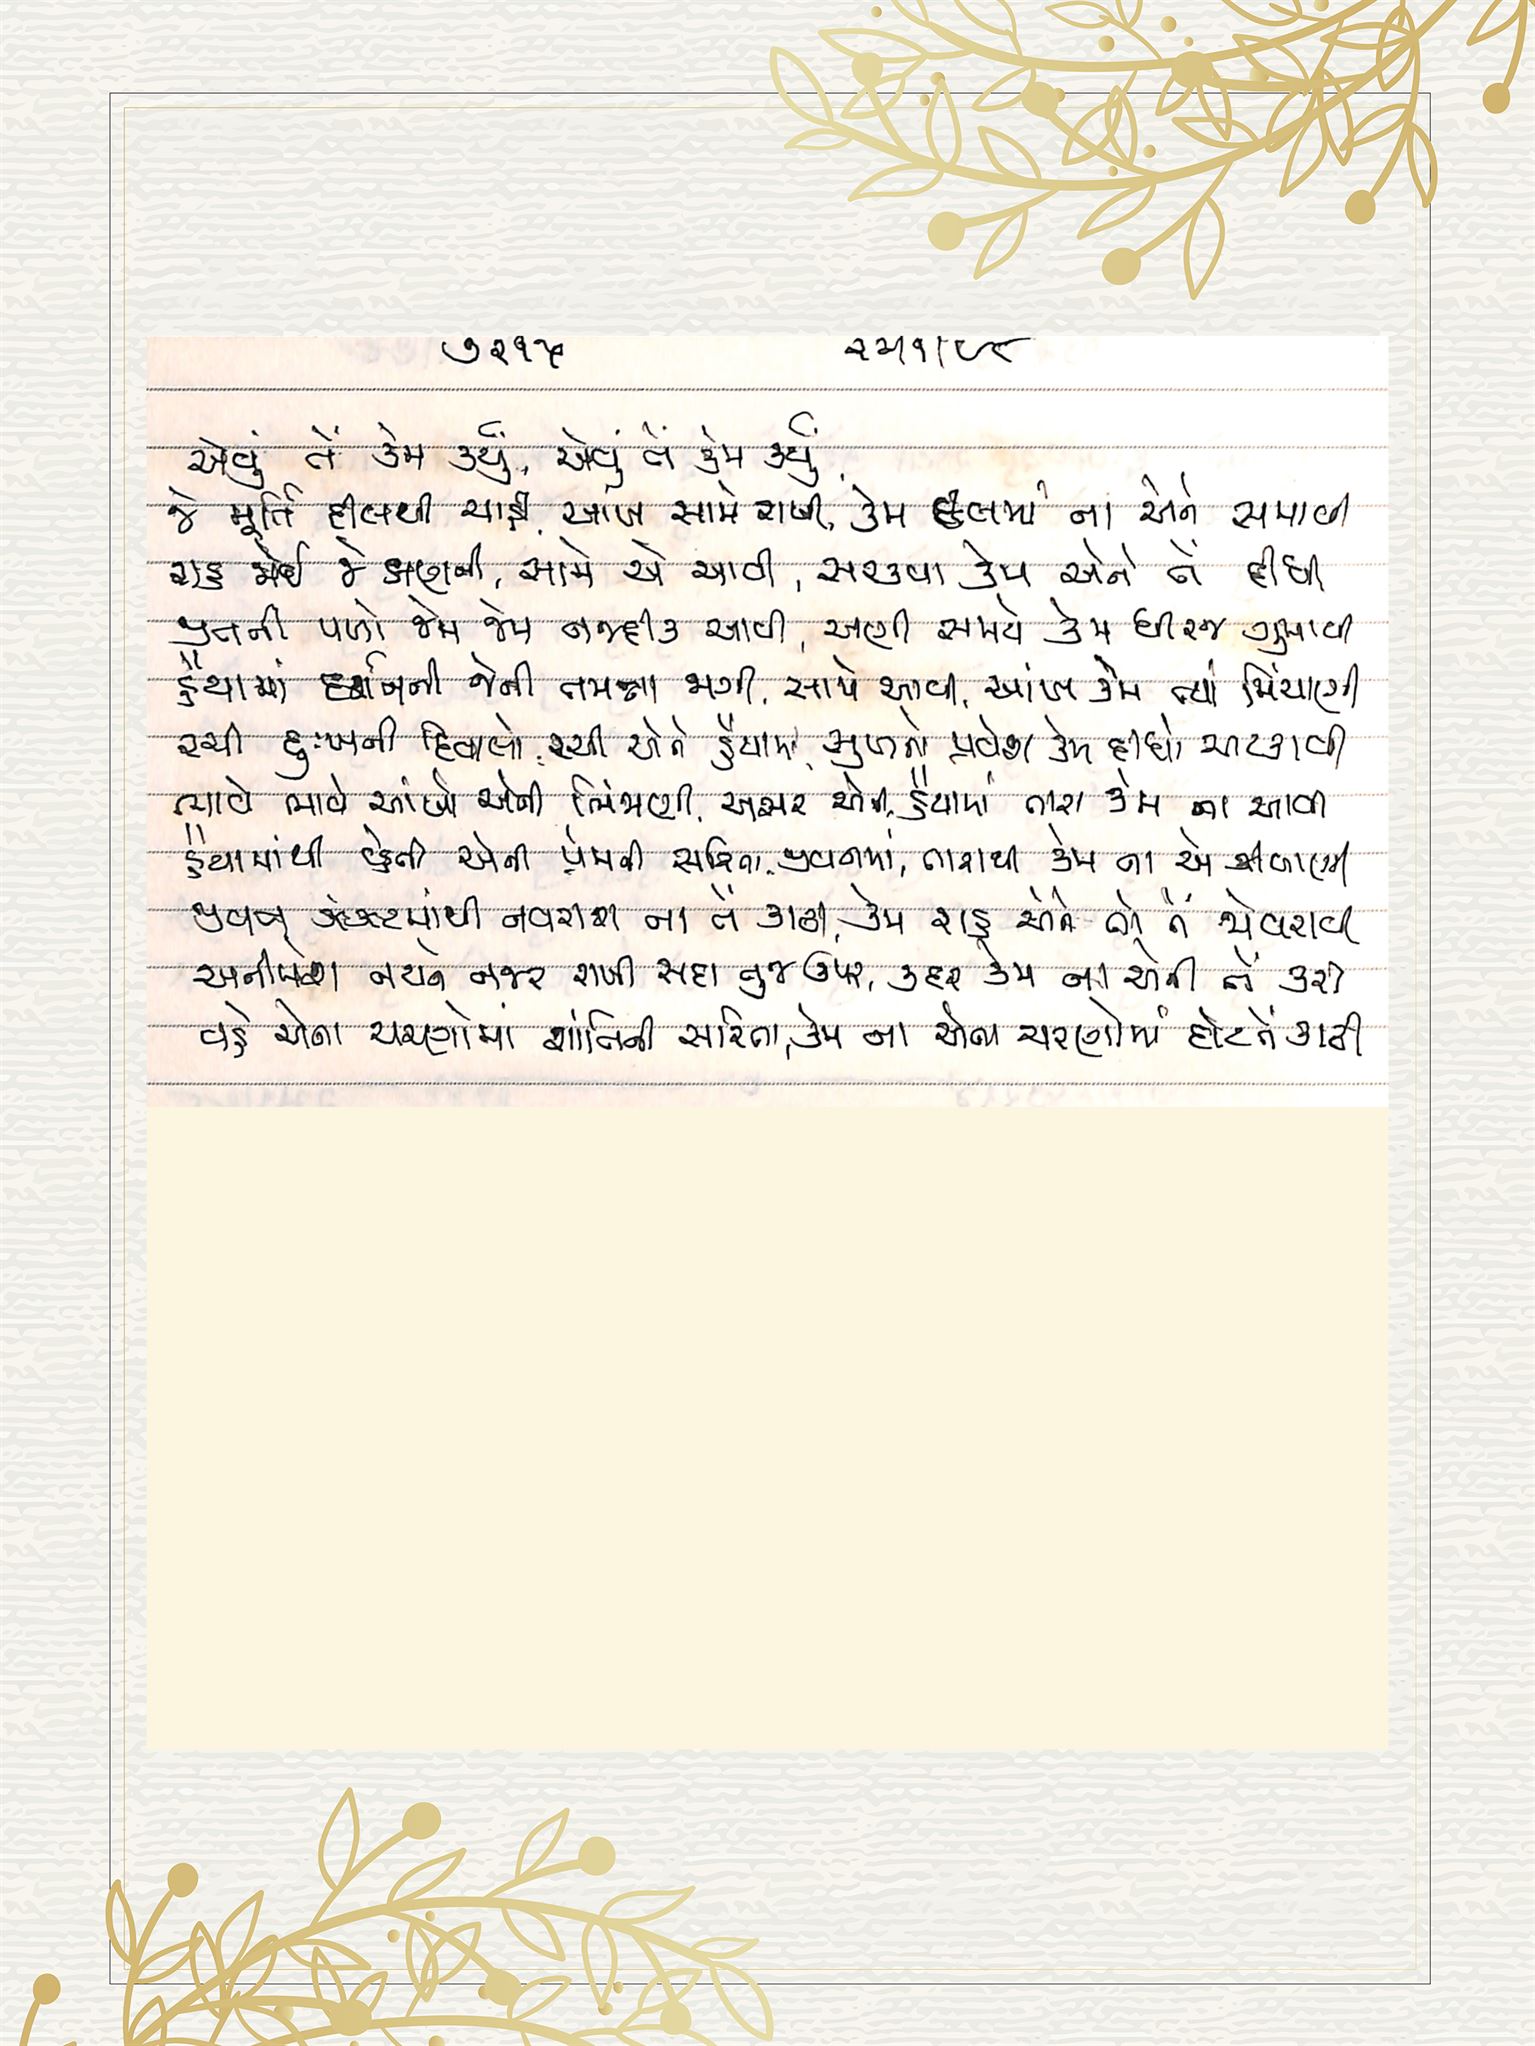 ૭૨૧૫ ૨૫।૧।૯૮
એવું તેં કેમ કર્યું, એવું તેં કેમ કર્યું
જે મૂર્તિ દીલથી ચાહી, આંખ સામે રાખી, કેમ દીલમાં ના એને સમાવી
રાહ જોઈ જે ક્ષણની, સામે એ આવી, સરકવા કેમ એને તેં દીધી
મિલનની પળો જેમ જેમ નજદીક આવી, અણી સમયે કેમ ધીરજ ગુમાવી
હૈયામાં દર્શનની જેની તમન્ના જાગી, સામે આવી, આંખ કેમ ત્યાં મિંચાણી
રચી દુઃખની દિવાલો રચી એને હૈયામાં, સુખનો પ્રવેશ કેમ દીધો અટકાવી
ભાવે ભાવે આંખો એની ભિંજાણી, અસર એની હૈયામાં તારા કેમ ના આવી
હૈયામાંથી વ્હેતી એની પ્રેમની સરિતા જીવનમાં, તારાથી કેમ ના એ ઝીલાણી
જીવન ઝંઝટમાંથી નવરાશ ના તેં કાઢી, કેમ રાહ એને તેં જોવરાવી
અનીમેશ નયને નજર રાખી સદા તુજ ઉપર, કદર કેમ ના એની તેં કરી
વહે એના ચરણોમાં શાંતિની સરિતા, કેમ ના એના ચરણોમાં દોટ તેં કાઢી